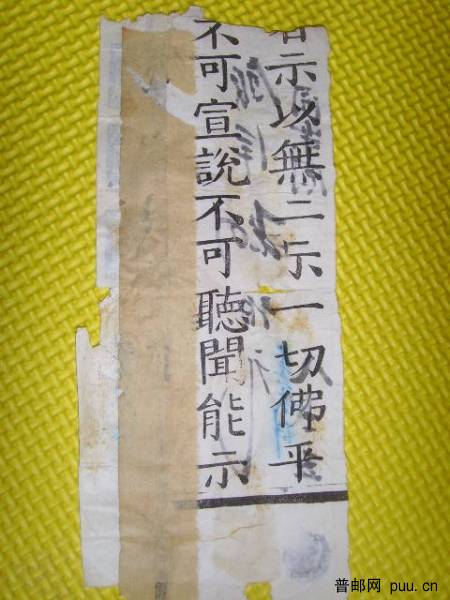 示以無二示一切佛平
不可宣說不可聽聞能示
普邮网 puu.cn